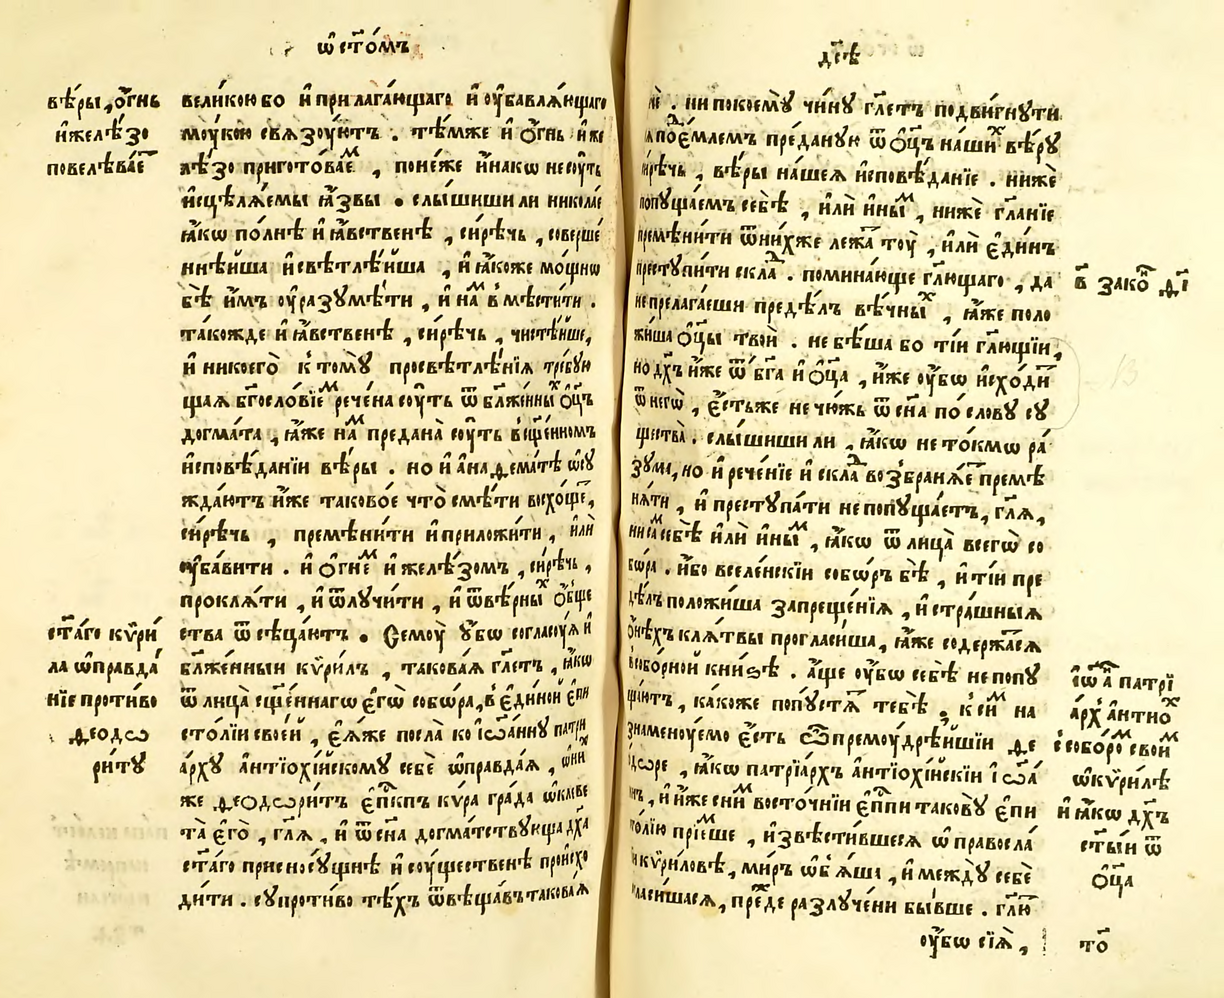 ѡ҆ ст҃о́мъ
вѣ́ры, ѻ҆́гнь
и҆желѣ́зо
повелѣва́еⷮ
вели́коюбо и҆прилага́ющаго и҆ оу҆бавлѧ́ющаго
мꙋ́кою свѧ́зоуютъ . тѣ́мже и҆ ѻ҆гнь и҆же
лѣ́зо пригото́ваеⷨ , поне́же и҆на́кѡ несоу́ть
и҆сцѣлѧ́емы ꙗ҆́звы . слы́шиши ли никола́е
ꙗ҆́кѡ по́лнѣ и҆ ꙗ҆́вственѣ , си́рѣчь , соверше́
ннѣ́йша и҆свѣтлѣ́йша , и҆ ꙗ҆́коже мо́щнѡ
бѣ̀ и҆̀мъ оу҆разꙋмѣ́ти , и҆ на́ⷨ вмѣсти́ти .
та́кожде и҆ ꙗ҆́вственѣ , си́рѣчь , чистѣ́йше,
и҆ никоего̀ к томꙋ̀ просвѣтлѣ́нїѧ тре́бꙋю
щаѧ бг҃осло́вїеⷨ рече́на соу́ть ѿ бл҃же́нныⷯ ѻ҆ц҃ъ
догма́та , ꙗ҆́же на́ⷨ предана̀ соу́ть всщ҃е́нномъ
и҆сповѣ́данїи вѣ́ры . но и҆ а҆наѳемате ѡ҆сꙋ
жда́ютъ и҆́же таково́е что̀ смѣ́ти восхо́щеⷮ,
си́рѣчь , премѣни́ти и҆приложи́ти , и҆лѝ
оу҆ба́вити . и҆ ѻ҆гне́ⷨ и҆ желѣ́зомъ , си́рѣчь ,
проклѧ́ти , и҆ ѿлꙋчи́ти , и҆ ѿвѣ́рныⷯ ѻ҆́бще
ства ѿсѣца́ютъ . Семоу̀ ᲂу҆́бѡ согласоу́ѧ и҆
бл҃же́нныи кѷри́лъ , такова́ѧ гл҃етъ , ꙗ҆́кѡ
ѿ лица̀ сщ҃е́ннагѡ є҆гѡ̀ собо́ра, в є҆ди́нои є҆пи
сто́лїи свое́и , є҆ѧ́же посла̀ ко і҆ѡа́ннꙋ патри
а́рхꙋ а҆нтїохі́йскомꙋ себѐ ѡ҆правда́ѧ , ѡ҆ни́ⷯ
же ѳеодѡри́тъ є҆пⷭ҇кпъ кѵ́ра гра́да ѡ҆клеве
та̀ є҆го̀ , гл҃ѧ , и҆ ѿ сн҃а догма́тствꙋюща дх҃а
ст҃а́го присносꙋ́щнѣ и҆ соу́щественѣ происхо
ди́ти . сꙋпроти́во тѣ́хъ ѿвѣща́въ такова́ѧ
ст҃а́го кѷри́
ла ѡ҆правда́
нїе проти́во
ѳеодѡ
ри́тꙋ
дс҃ѣ
нѐ . ни по кое́мꙋ чи́нꙋ гл҃етъ подви́гнꙋти
прїе́млемъ пре́даную ѿ ѻ҆ц҃ъ на́шиⷯ вѣ́рꙋ
си́рѣчь , вѣ́ры на́шеѧ и҆сповѣ́данїе . нижѐ
попꙋща́емъ себѣ̀ , и҆лѝ и҆ны́ⷨ , нижѐ гл҃а́нїе
премѣни́ти ѿ ни́хже лежа́ⷮ тоу̀ , и҆лѝ є҆ди́нъ
престꙋпи́ти скла́ⷣ . помина́юще гл҃ющаго , да
не прелага́еши предѣ́лъ вѣ́чныⷯ , ꙗ҆́же поло
жи́ша ѻ҆ц҃ы твоѝ . не бѣ́ша бо ті́и гл҃ющіи,
но дх҃ъ и҆́же ѿ бг҃а и҆ ѻ҆ц҃а , и҆́же оу҆́бѡ и҆схо́диⷮ
ѿ негѡ̀ , є҆́стьже не чю́жь ѿ сн҃а по сло́вꙋ сꙋ
щества̀ . слы́шиши ли , ꙗ҆́кѡ не то́кмѡ ра́
зꙋма, но и҆ рече́нїе и҆ скла́ⷣ возбранѧ́еⷮ премѣ
нѧ́ти , и҆ престꙋпа́ти не попꙋща́етъ, гл҃ѧ,
ни са́ⷨ себѣ̀ и҆лѝ и҆ны́ⷨ , ꙗ҆́кѡ ѿ лица̀ всегѡ̀ со
бѡ́ра . и҆́бо вселе́нскїи собо́ръ бѣ̀ , и҆ ті́и пре
дѣ́лъ положи́ша запреще́нїѧ , и҆ стра́шныѧ
ѻ҆нѣ́хъ клѧ́твы прогласи́ша , ꙗ҆́же содержа́сѧ
в собо́рной кни́ѕѣ . а҆́ще оу҆́бѡ себѣ̀ не попꙋ
ща́ютъ , ка́коже попꙋ́стѧⷮ тебѣ̀ . к си́ⷨ на
знаменоу́емо є҆́сть ѽ премоудрѣ́йшїи ѳе
одѡре , ꙗ҆́кѡ патрїа́рхъ а҆нтїохі́йскїи і҆ѡа́
ннъ , и҆ и҆́же сни́ⷨ восто́чнїи є҆пⷭ҇пи такову̀ є҆пи
сто́лїю прїе́мше , и҆звѣсти́вшесѧ ѡ҆ правосла́
вїи кѷри́ловѣ , ми́ръ ѡ҆б̾ѧ́ша , и҆ междꙋ̀ себѐ
согласи́шасѧ, пре́жде разлꙋче́ни бы́вше . гл҃ю
оу҆́бѡ сїѧ̀ ,
в҃ зако́ⷩ ѳ҃і
і҆ѡа́ⷩ патрі
а́рхⷯ а҆нтио́ⷯ
с собо́роⷨ свои́ⷨ
ѡ҆кѷри́лѣ
и҆ ꙗ҆́кѡ дх҃ъ
ст҃ы́и ѿ
ѻ҆ц҃а
то́